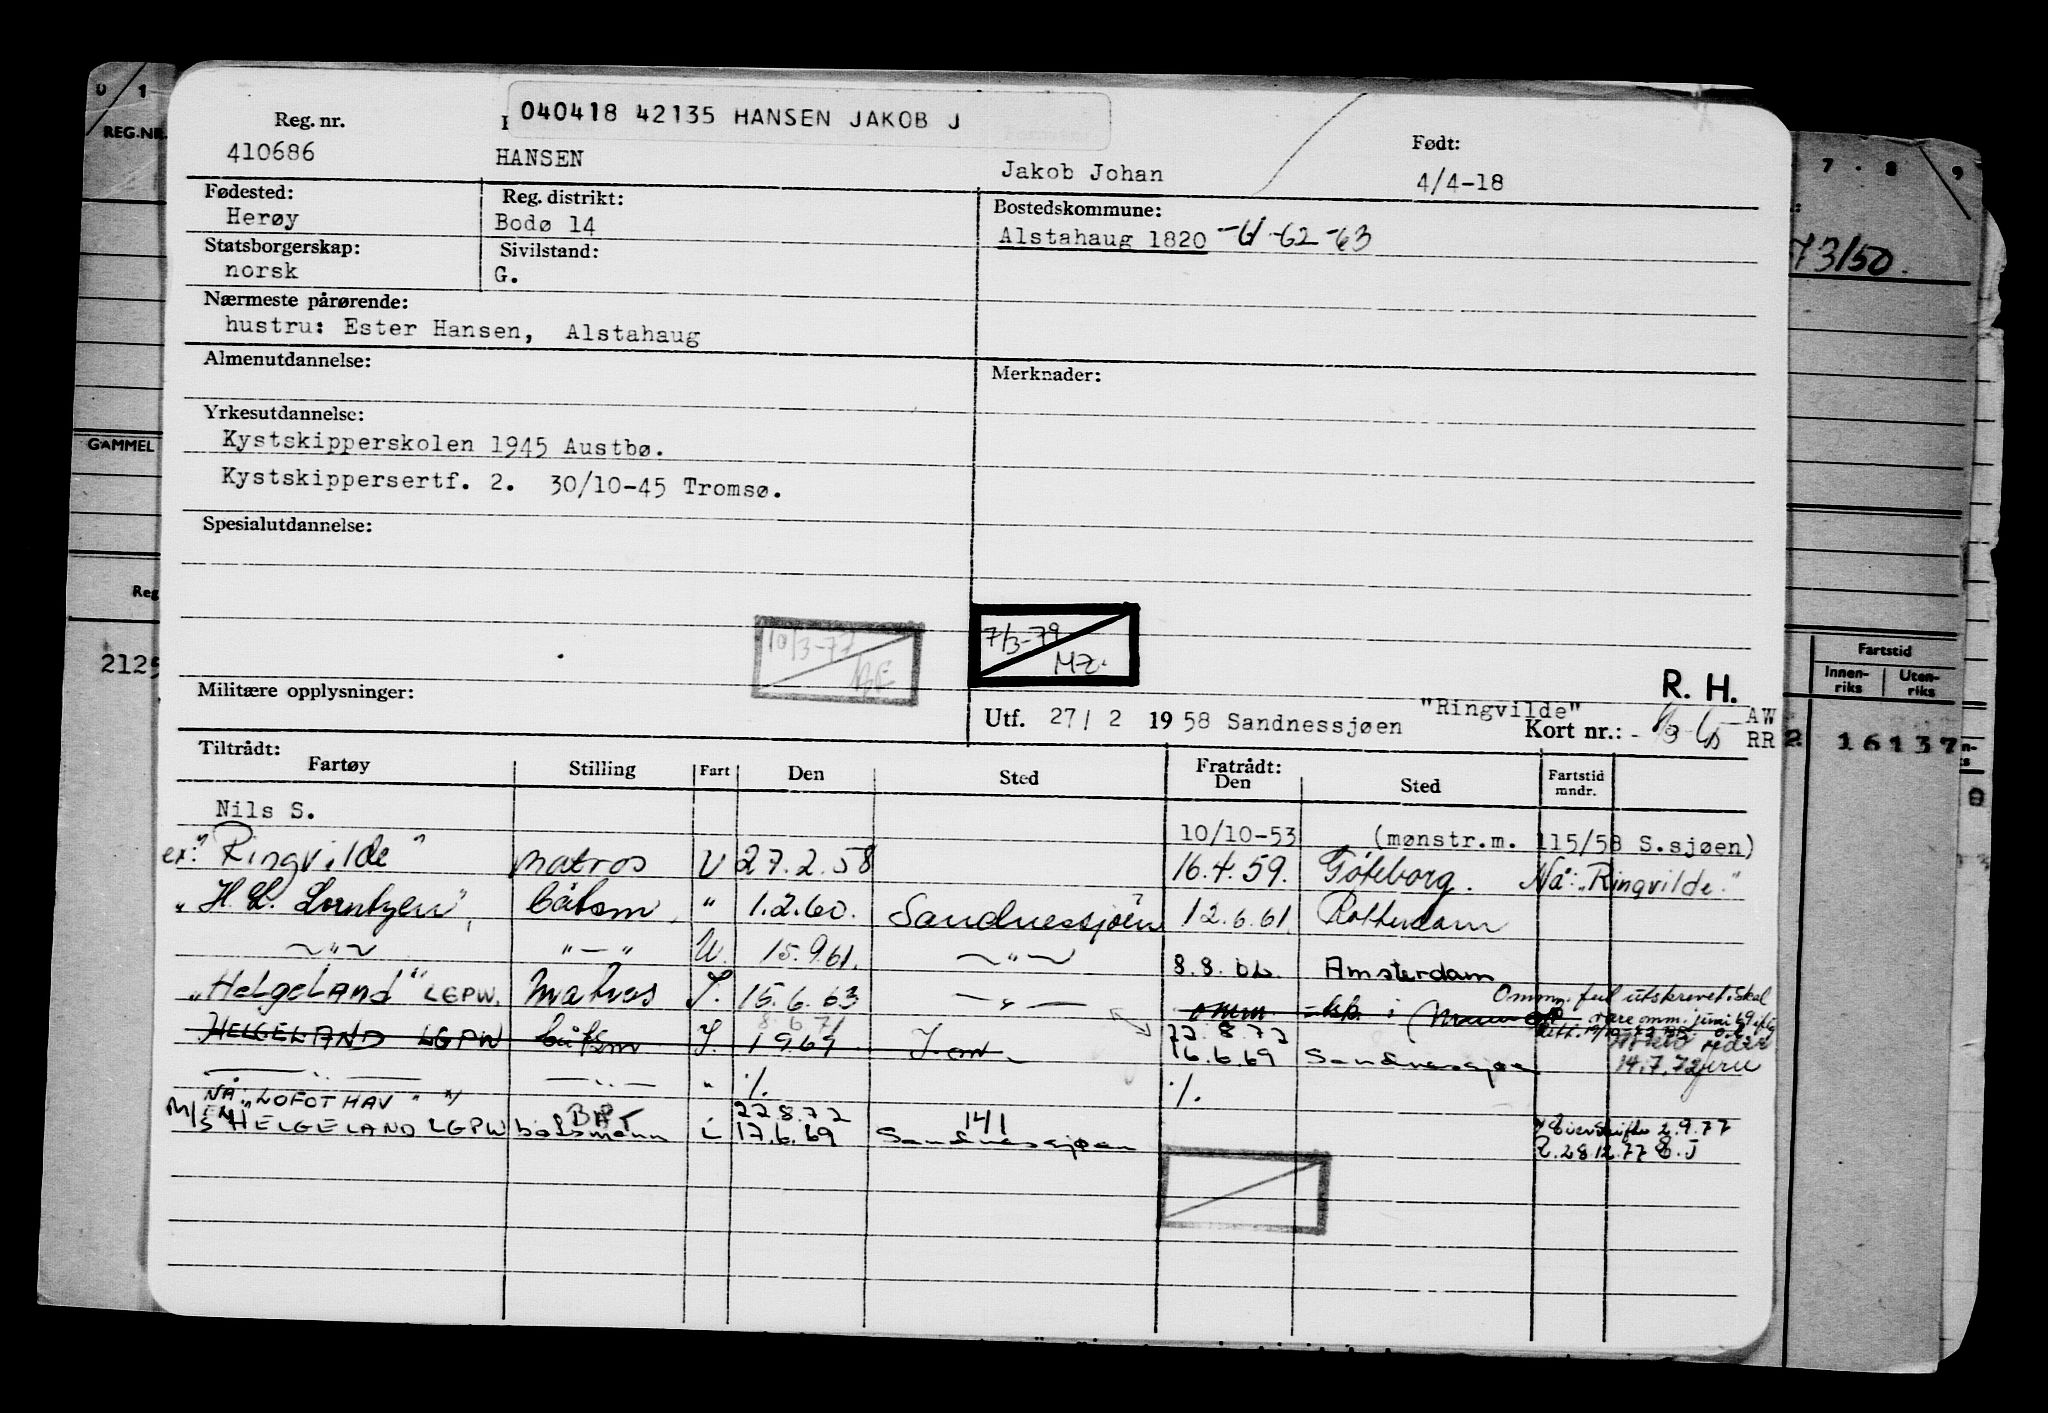 040418 42135 HANSEN JAKOB J
Reg. nr.
410686
HANSEN
Jakob Johan
Født:
4/4-18
Fødested:
Herøy
Reg. distrikt:
Bodø 14
Bostedskommune:
Alstahaug 1820 -61-62-63
Statsborgerskap:
norsk
Sivilstand:
G.
Nærmeste pårørende:
hustru: Ester Hansen, Alstahaug
Almenutdannelse:
Merknader:
Yrkesutdannelse:
Kystskipperskolen 1945 Austbø.
Kystskippersertf. 2. 30/10-45 Tromsø.
Spesialutdannelse:
10/3-77
7/3-79
MZ.
Militære opplysninger:
R. H.
Utf. 27/ 2 1958 Sandnessjøen "Ringvilde"
Kort nr.:
AW
RR
Tiltrådt:
Fartøy Stilling Fart Den Sted
Fratrådt:
Den Sted
Fartstid
mndr.
Nils S. 10/10-53 (mønstr.m. 115/58 S.sjøen)
ex: "Ringvilde" matros U 27.2.58 16.4.59. Göteborg. Nå: "Ringvilde."
"H. L. Lorentzen", båtsm, " 1.2.60. Sandnessjøen 12.6.61. Rotterdam
~"~ "—" U. 15.9.61. ~"~ 8.8.62. Amsterdam
"HELGELAND" LGPW. Matros I. 15.6.63 —"—
Omm. feil utskrevet. skal
være omm. juni 69
HELGELAND LGPW båtsm I. 1969 22.8.72
16.6.69 Sandnessjøen
14.7.72
" ./. ./.
NÅ: "LOFOTHAV"
M/S HELGELAND LGPW båtsmann i 22.8.72
17.6.69 141
Sandnessjøen
Eierskifte 2.9.77
R. 28.12.77
0 1
REG.NR.
GAMMEL
Reg
2125
7 . 8 9
73/50.
Fartstid
Innen-
riks
Uten-
riks
2 16137